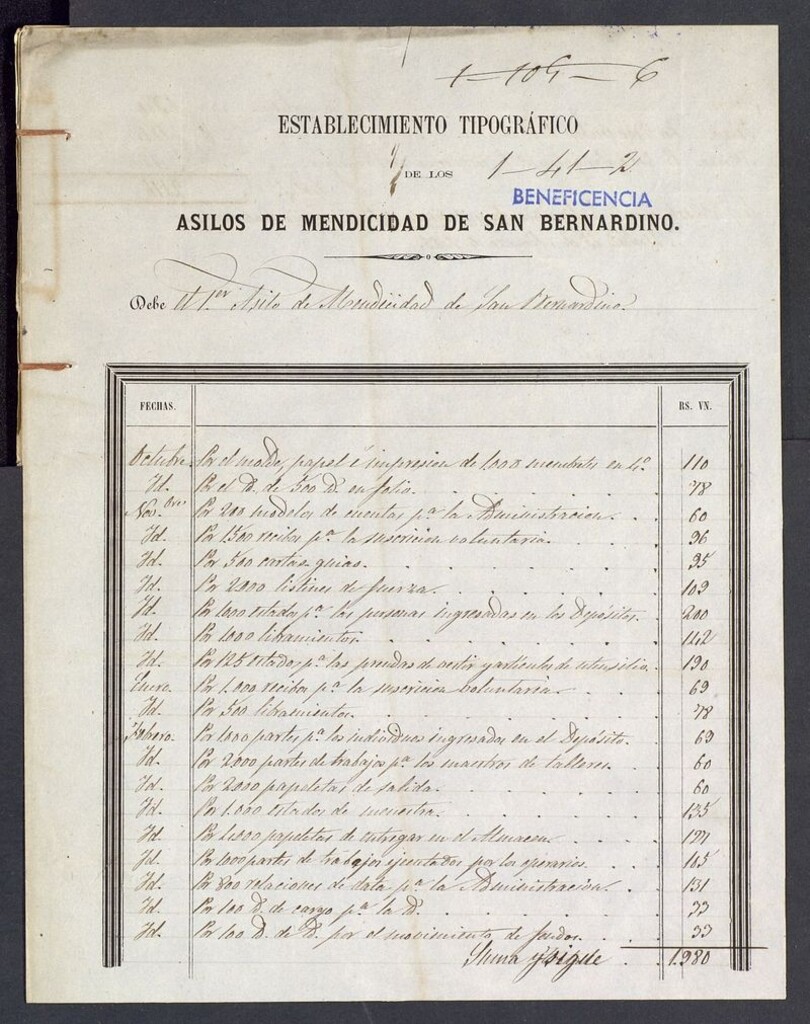 1-105-6
ESTABLECIMIENTO TIPOGRÁFICO
DE LOS
1-41-2
BENEFICENCIA
ASILOS DE MENDICIDAD DE SAN BERNARDINO.
Debe el 1.er Asilo de Mendicidad de San Bernardino.
FECHAS. RS. VN.
Octubre. Por el molde, papel é impresion de 1000 membretes en 4.º 110
Id. Por el D. de 500 D. en folio. 78
Nov.bre Por 200 modelos de cuentas p.ª la Administracion. 60
Id. Por 1500 recibos p.ª la suscricion voluntaria. 96
Id. Por 500 cartas guias. 95
Id. Por 2000 listines de fuerza. 109
Id. Por 1000 estados p.ª las personas ingresadas en los Depósitos. 200
Id. Por 1000 libramientos. 142
Id. Por 125 estados p.ª las prendas de vestir y artículos de utensilio. 190
Enero. Por 1.000 recibos p.ª la suscricion voluntaria. 69
Id. Por 500 libramientos. 78
Febrero. Por 1000 partes p.ª los individuos ingresados en el Depósito. 69
Id. Por 2.000 partes de trabajos p.ª los maestros de talleres. 60
Id. Por 2000 papeletas de salida. 60
Id. Por 1.000 estados de 135
Id. Por 4.000 papeletas de entregar en el Almacen. 124
Id. Por 1000 partes de trabajos ejecutados por los operarios. 145
Id. Por 800 relaciones de data p.ª la Administracion. 131
Id. Por 100 D. de cargo p.ª la D. 33
Id. Por 100 D. de D. por el movimiento de fondos. 33
Suma y sigue 1.980